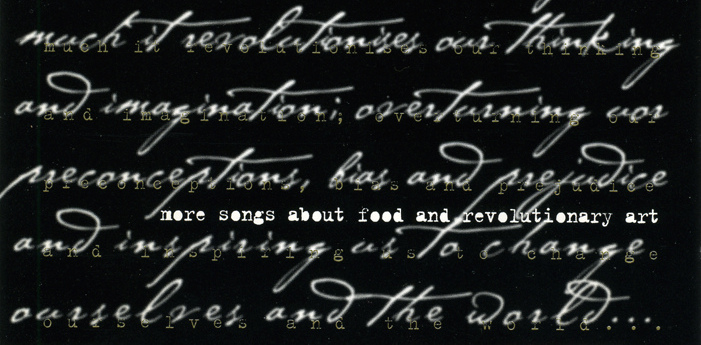 much it revolutionises our thinking
much it revolutionises our thinking
and imagination; overturning our
and imagination; overturning our
preconceptions, bias and prejudice
preconceptions, bias and prejudice
more songs about food and revolutionary art
and inspiring us to change
and inspiring us to change
ourselves and the world...
ourselves and the world...